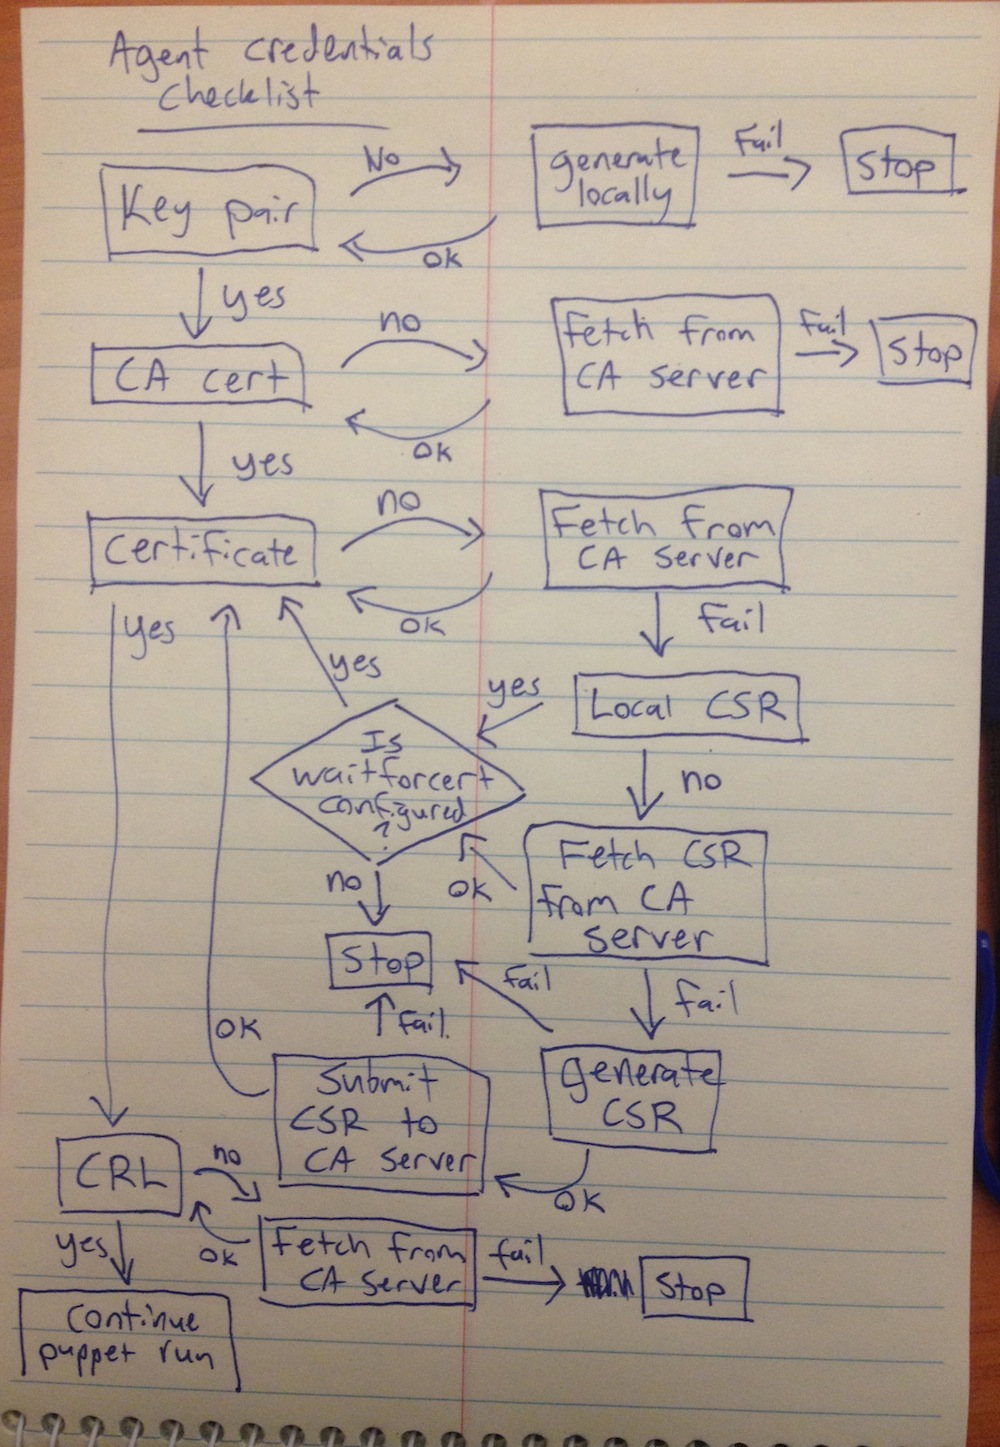 Agent credentials
checklist
Key pair
No
generate
locally
Fail
Stop
OK
yes
CA cert
no
Fetch from
CA server
Fail
Stop
OK
yes
Certificate
no
Fetch from
CA server
OK
Fail
yes
yes
yes
Local CSR
Is
waitforcert
configured
?
no
Fetch CSR
from CA
server
OK
no
Stop
fail
fail
fail.
OK
generate
CSR
Submit
CSR to
CA server
OK
CRL
no
OK
yes
Fetch from
CA server
fail
Stop
Continue
puppet run